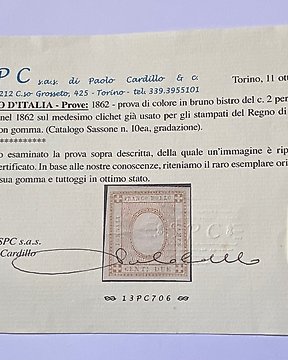 P C s.a.s. di Paolo Cardillo & C.
212 C.so Grosseto, 425 - Torino - tel. 339.3955101
Torino, 11 ott
O D'ITALIA - Prove: 1862 - prova di colore in bruno bistro del c. 2 per
nel 1862 sul medesimo clichet già usato per gli stampati del Regno di
on gomma. (Catalogo Sassone n. 10ea, gradazione).
**********
o esaminato la prova sopra descritta, della quale un'immagine è rip
ertificato. In base alle nostre conoscenze, riteniamo il raro esemplare ori
sua gomma e tuttoggi in ottimo stato.
FRANCO BOLLO
CENTI DUE
SPC s.a.s.
Cardillo
13PC706